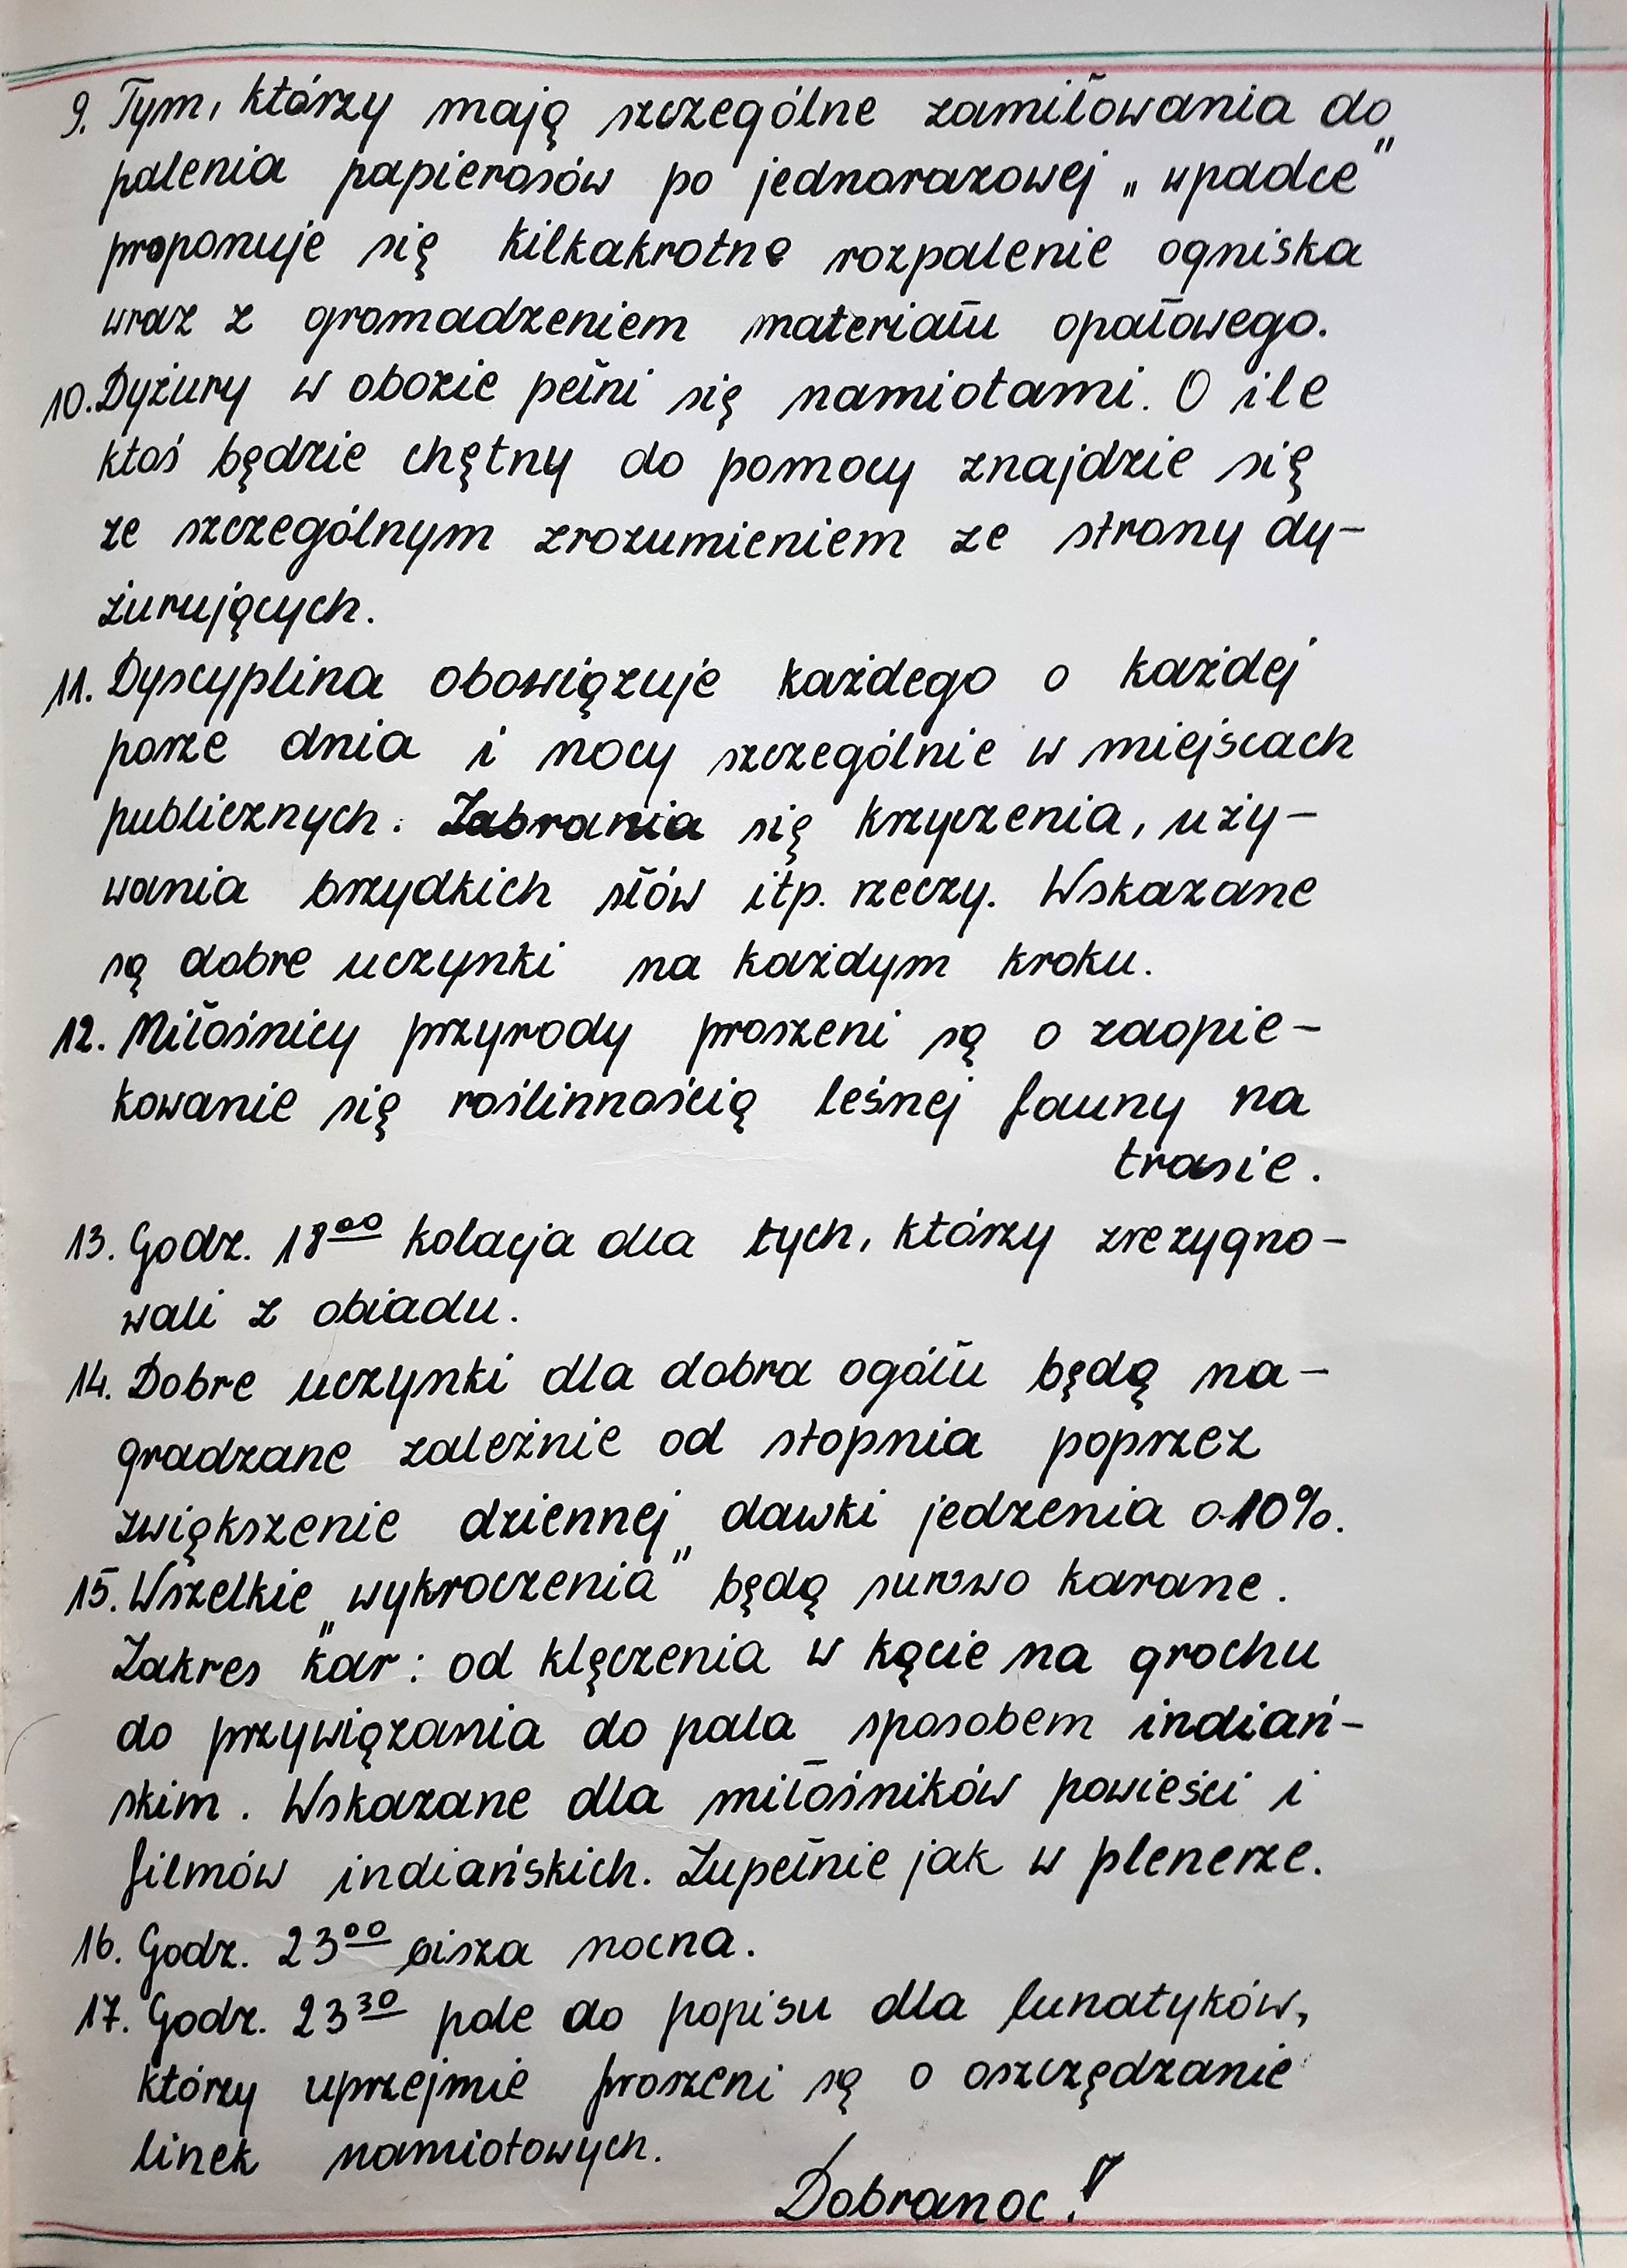 9. Tym, którzy mają szczególne zamiłowania do
palenia papierosów po jednorazowej „wpadce"
proponuje się kilkakrotne rozpalenie ogniska
wraz z gromadzeniem materiału opałowego.
10. Dyżury w obozie pełni się namiotami. O ile
ktoś będzie chętny do pomocy znajdzie się
ze szczególnym zrozumieniem ze strony dy-
żurujących.
11. Dyscyplina obowiązuje każdego o każdej
porze dnia i nocy szczególnie w miejscach
publicznych. Zabrania się krzyczenia, uży-
wania brzydkich słów itp. rzeczy. Wskazane
są dobre uczynki na każdym kroku.
12. Miłośnicy przyrody proszeni są o zaopie-
kowanie się roślinnością leśnej fauny na
trasie.
13. Godz. 18⁰⁰ kolacja dla tych, którzy zrezygno-
wali z obiadu.
14. Dobre uczynki dla dobra ogółu będą na-
gradzane zależnie od stopnia poprzez
zwiększenie dziennej dawki jedzenia o 10%.
15. Wszelkie „wykroczenia" będą surowo karane.
Zakres kar: od klęczenia w kącie na grochu
do przywiązania do pala sposobem indiań-
skim. Wskazane dla miłośników powieści i
filmów indiańskich. Zupełnie jak w plenerze.
16. Godz. 23⁰⁰ cisza nocna.
17. Godz. 23³⁰ pole do popisu dla lunatyków,
którzy uprzejmie proszeni są o oszczędzanie
linek namiotowych.
Dobranoc!